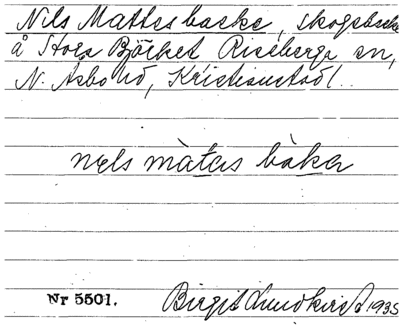 Nils Mattesbacke, skogsbacke
å Stora Björket Riseberga sn,
N. Åsbo hd, Kristianstad l.
nęls màtas bàkər
Nr 5501.
Birgit Lundkvist 1935